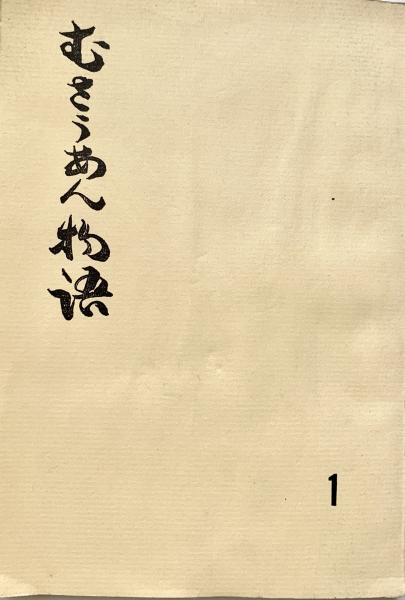 むさうあん物語
1